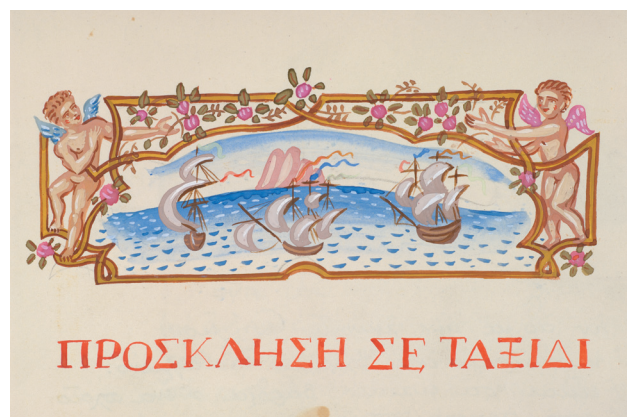 ΠΡΟΣΚΛΗΣΗ ΣΕ ΤΑΞΙΔΙ